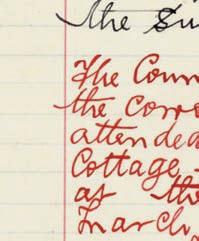 the Su
The Coun
the corr
attended
Cottage
as the
March